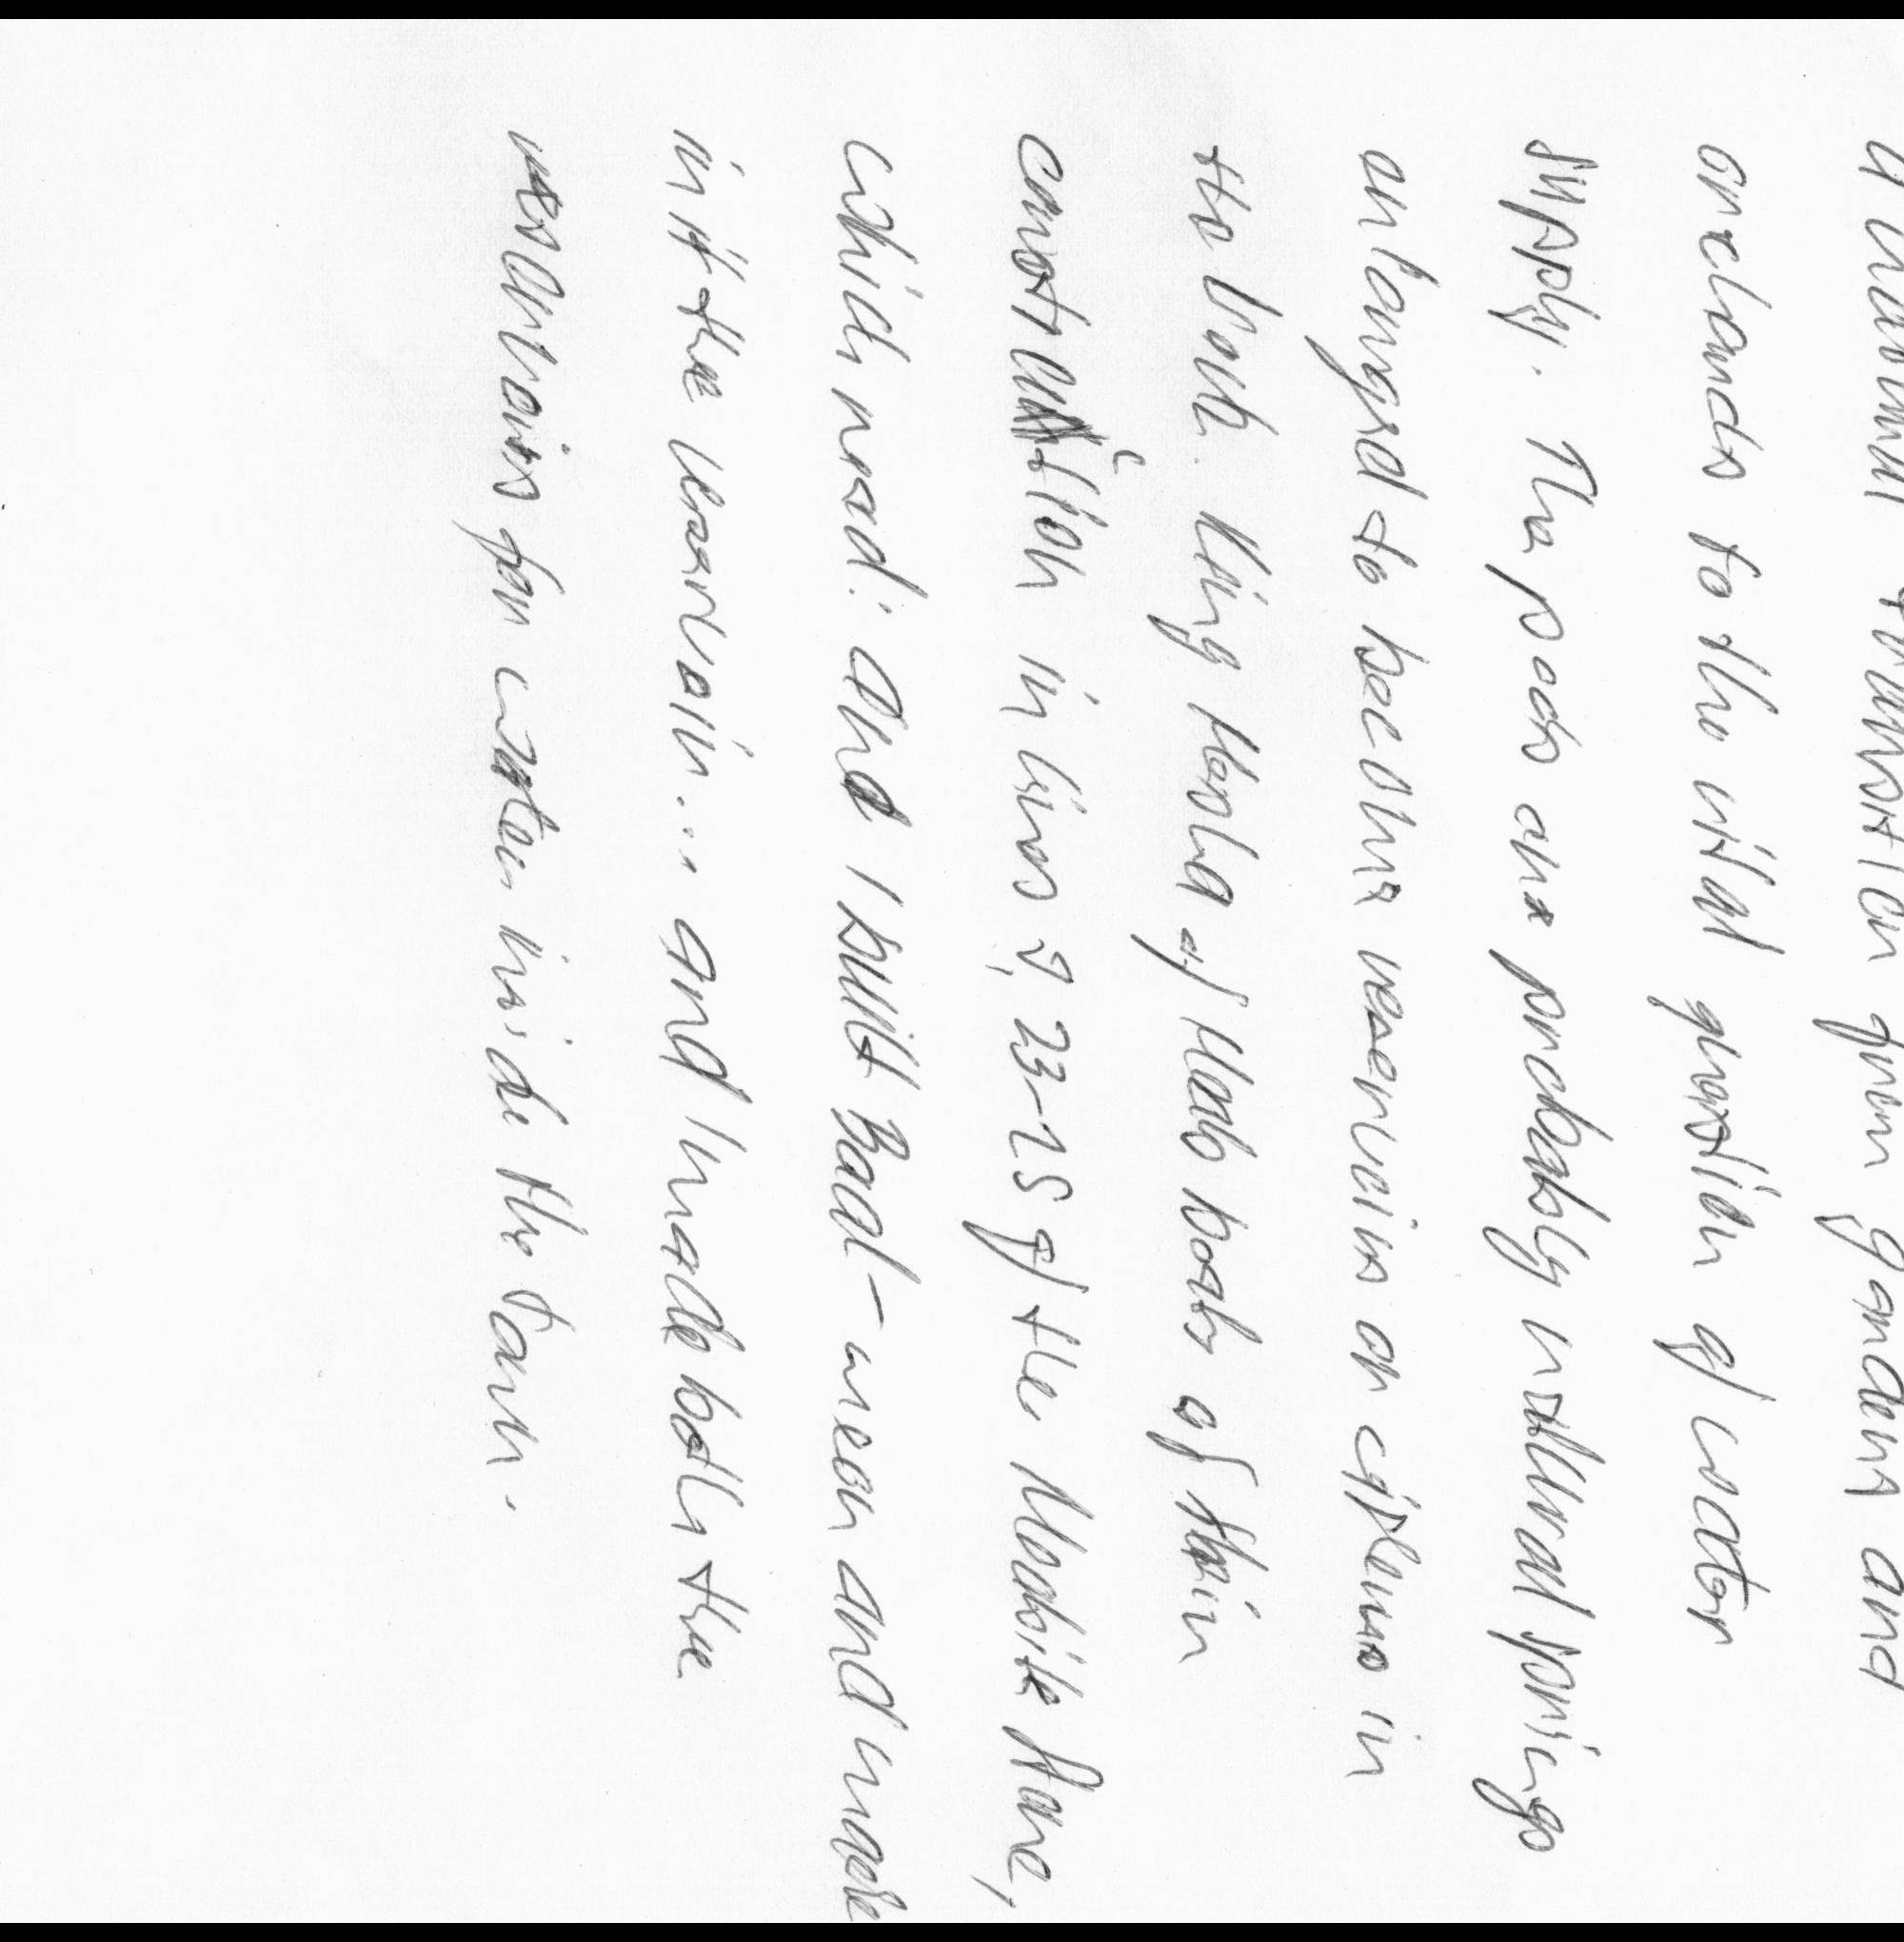 a natural transition from gardens and
orchards to the vital question of water
supply. The pools are probably natural springs
enlarged to become reservoirs or cisterns in
the rock. King Mesha of Moab boats of their
construction in lines 9, 23-25 of the Moabite stone,
which read: and I built Baal-meon and made
in it the reservoir... and I made both the
reservoirs for water inside the town.